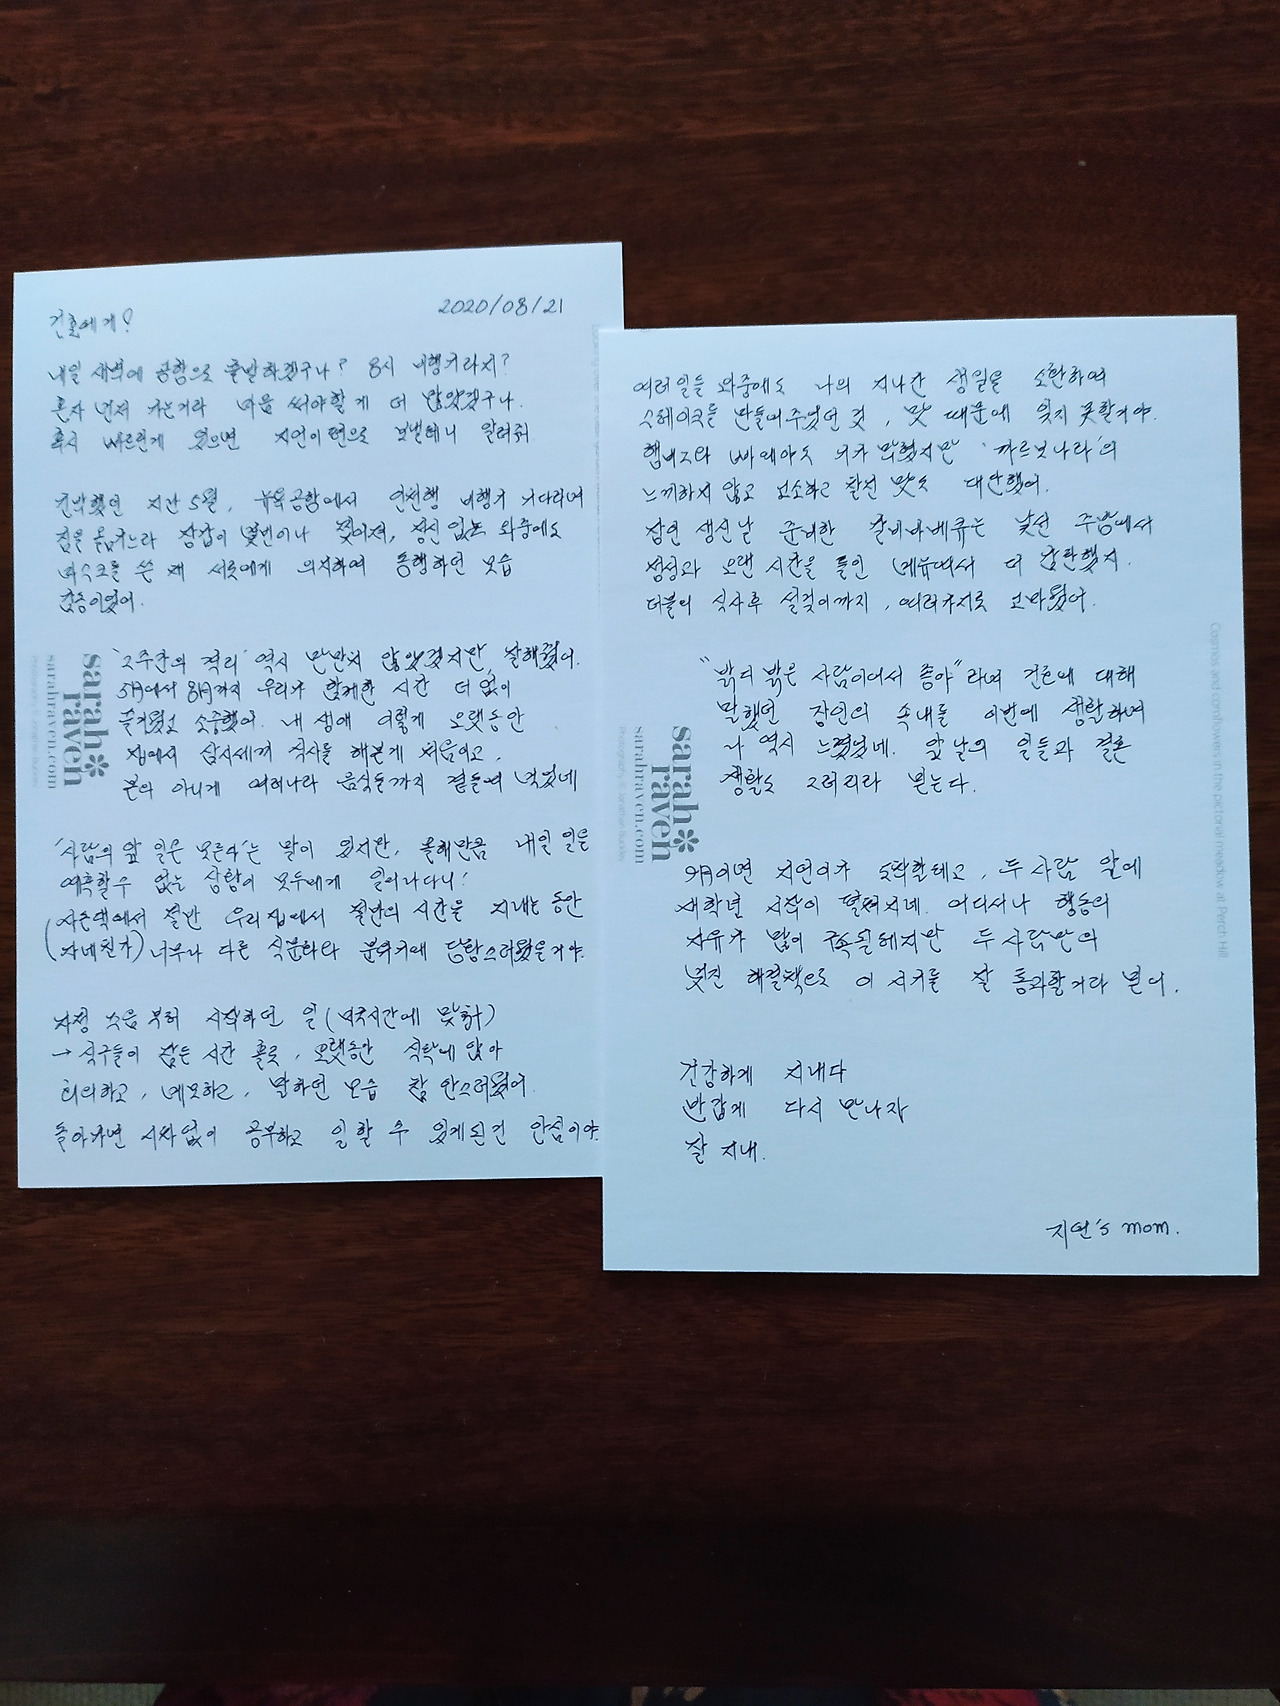 2020/08/21
건호에게!
내일 새벽에 공항으로 출발하겠구나? 8시 비행기라지?
혼자 먼저 가는거라 마음 써야할 게 더 많았겠구나.
혹시 빠트린게 있으면 지연이편으로 보낼테니 알려줘
긴박했던 지난 5월, 뉴욕공항에서 인천행 비행기 기다리며
짐을 옮기느라 장갑이 몇번이나 찢어져, 정신 없는 와중에도
마스크를 쓴 채 서로에게 의지하며 동행하던 모습
감동이었어.
'2주간의 격리' 역시 만만치 않았겠지만, 잘해줬어.
5月에서 8月까지 우리가 함께한 시간 더 없이
즐거웠고 소중했어. 내 생애 이렇게 오랫동안
집에서 삼시세끼 식사를 해본게 처음이고,
본의 아니게 여러나라 음식들까지 곁들여 먹었네
'사람의 앞 일은 모른다'는 말이 있지만, 올해만큼 내일 일을
예측할수 없는 상황이 모두에게 일어나다니!
사돈댁에서 절반 우리집에서 절반의 시간을 지내는 동안
(자네친가) 너무나 다른 식문화와 분위기에 당황스러웠을거야.
자정 즈음 부터 시작하던 일(미국시간에 맞춰)
→ 식구들이 잠든 시간 홀로, 오랫동안 식탁에 앉아
회의하고, 메모하고, 말하던 모습 참 안스러웠어.
돌아가면 시차없이 공부하고 일 할 수 있게된건 안심이야.
sarah raven
sarahraven.com
여러일들 와중에도 나의 지나간 생일을 소환하여
스테이크를 만들어주었던 것, 맛 때문에 잊지 못할거야.
햄버거와 빠에야도 기가 막혔지만 '까르보나라'의
느끼하지 않고 고소하고 찰진 맛도 대단했어.
장인 생신날 준비한 갈비바베큐는 낯선 주방에서
정성과 오랜 시간을 들인 메뉴여서 더 감탄했지.
더불어 식사후 설겆이까지, 여러가지로 고마웠어.
"밝디 밝은 사람이어서 좋아"라며 건호에 대해
말했던 장인의 속내를 이번에 생활하며
나 역시 느꼈었네. 앞날의 일들과 결혼
생활도 그러리라 믿는다.
9月이면 지연이가 도착할테고, 두 사람 앞에
새학년 시작이 펼쳐지네. 어디서나 행동의
자유가 많이 구속될테지만 두 사람만의
멋진 해결책으로 이 시기를 잘 통과할거라 믿어.
건강하게 지내다
반갑게 다시 만나자
잘 지내.
지연's mom.
sarah raven
sarahraven.com
Photography: © Jonathan Buckley
Cosmos and cornflowers in the pictorial meadow at Perch Hill